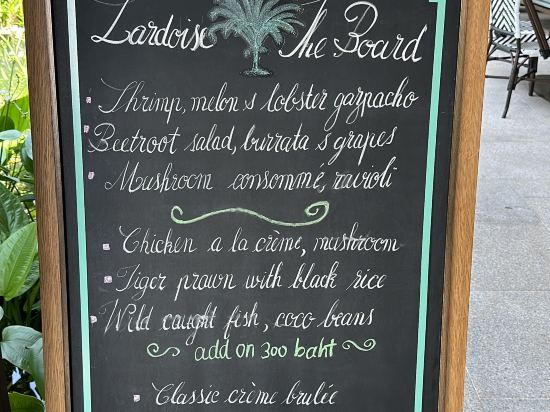 Lardoise The Board
Shrimp, melon & lobster gazpacho
Beetroot salad, burrata & grapes
Mushroom consommé, ravioli
Chicken a la crème, mushroom
Tiger prawn with black rice
Wild caught fish, coco beans
add on 300 baht
Classic crème brulée